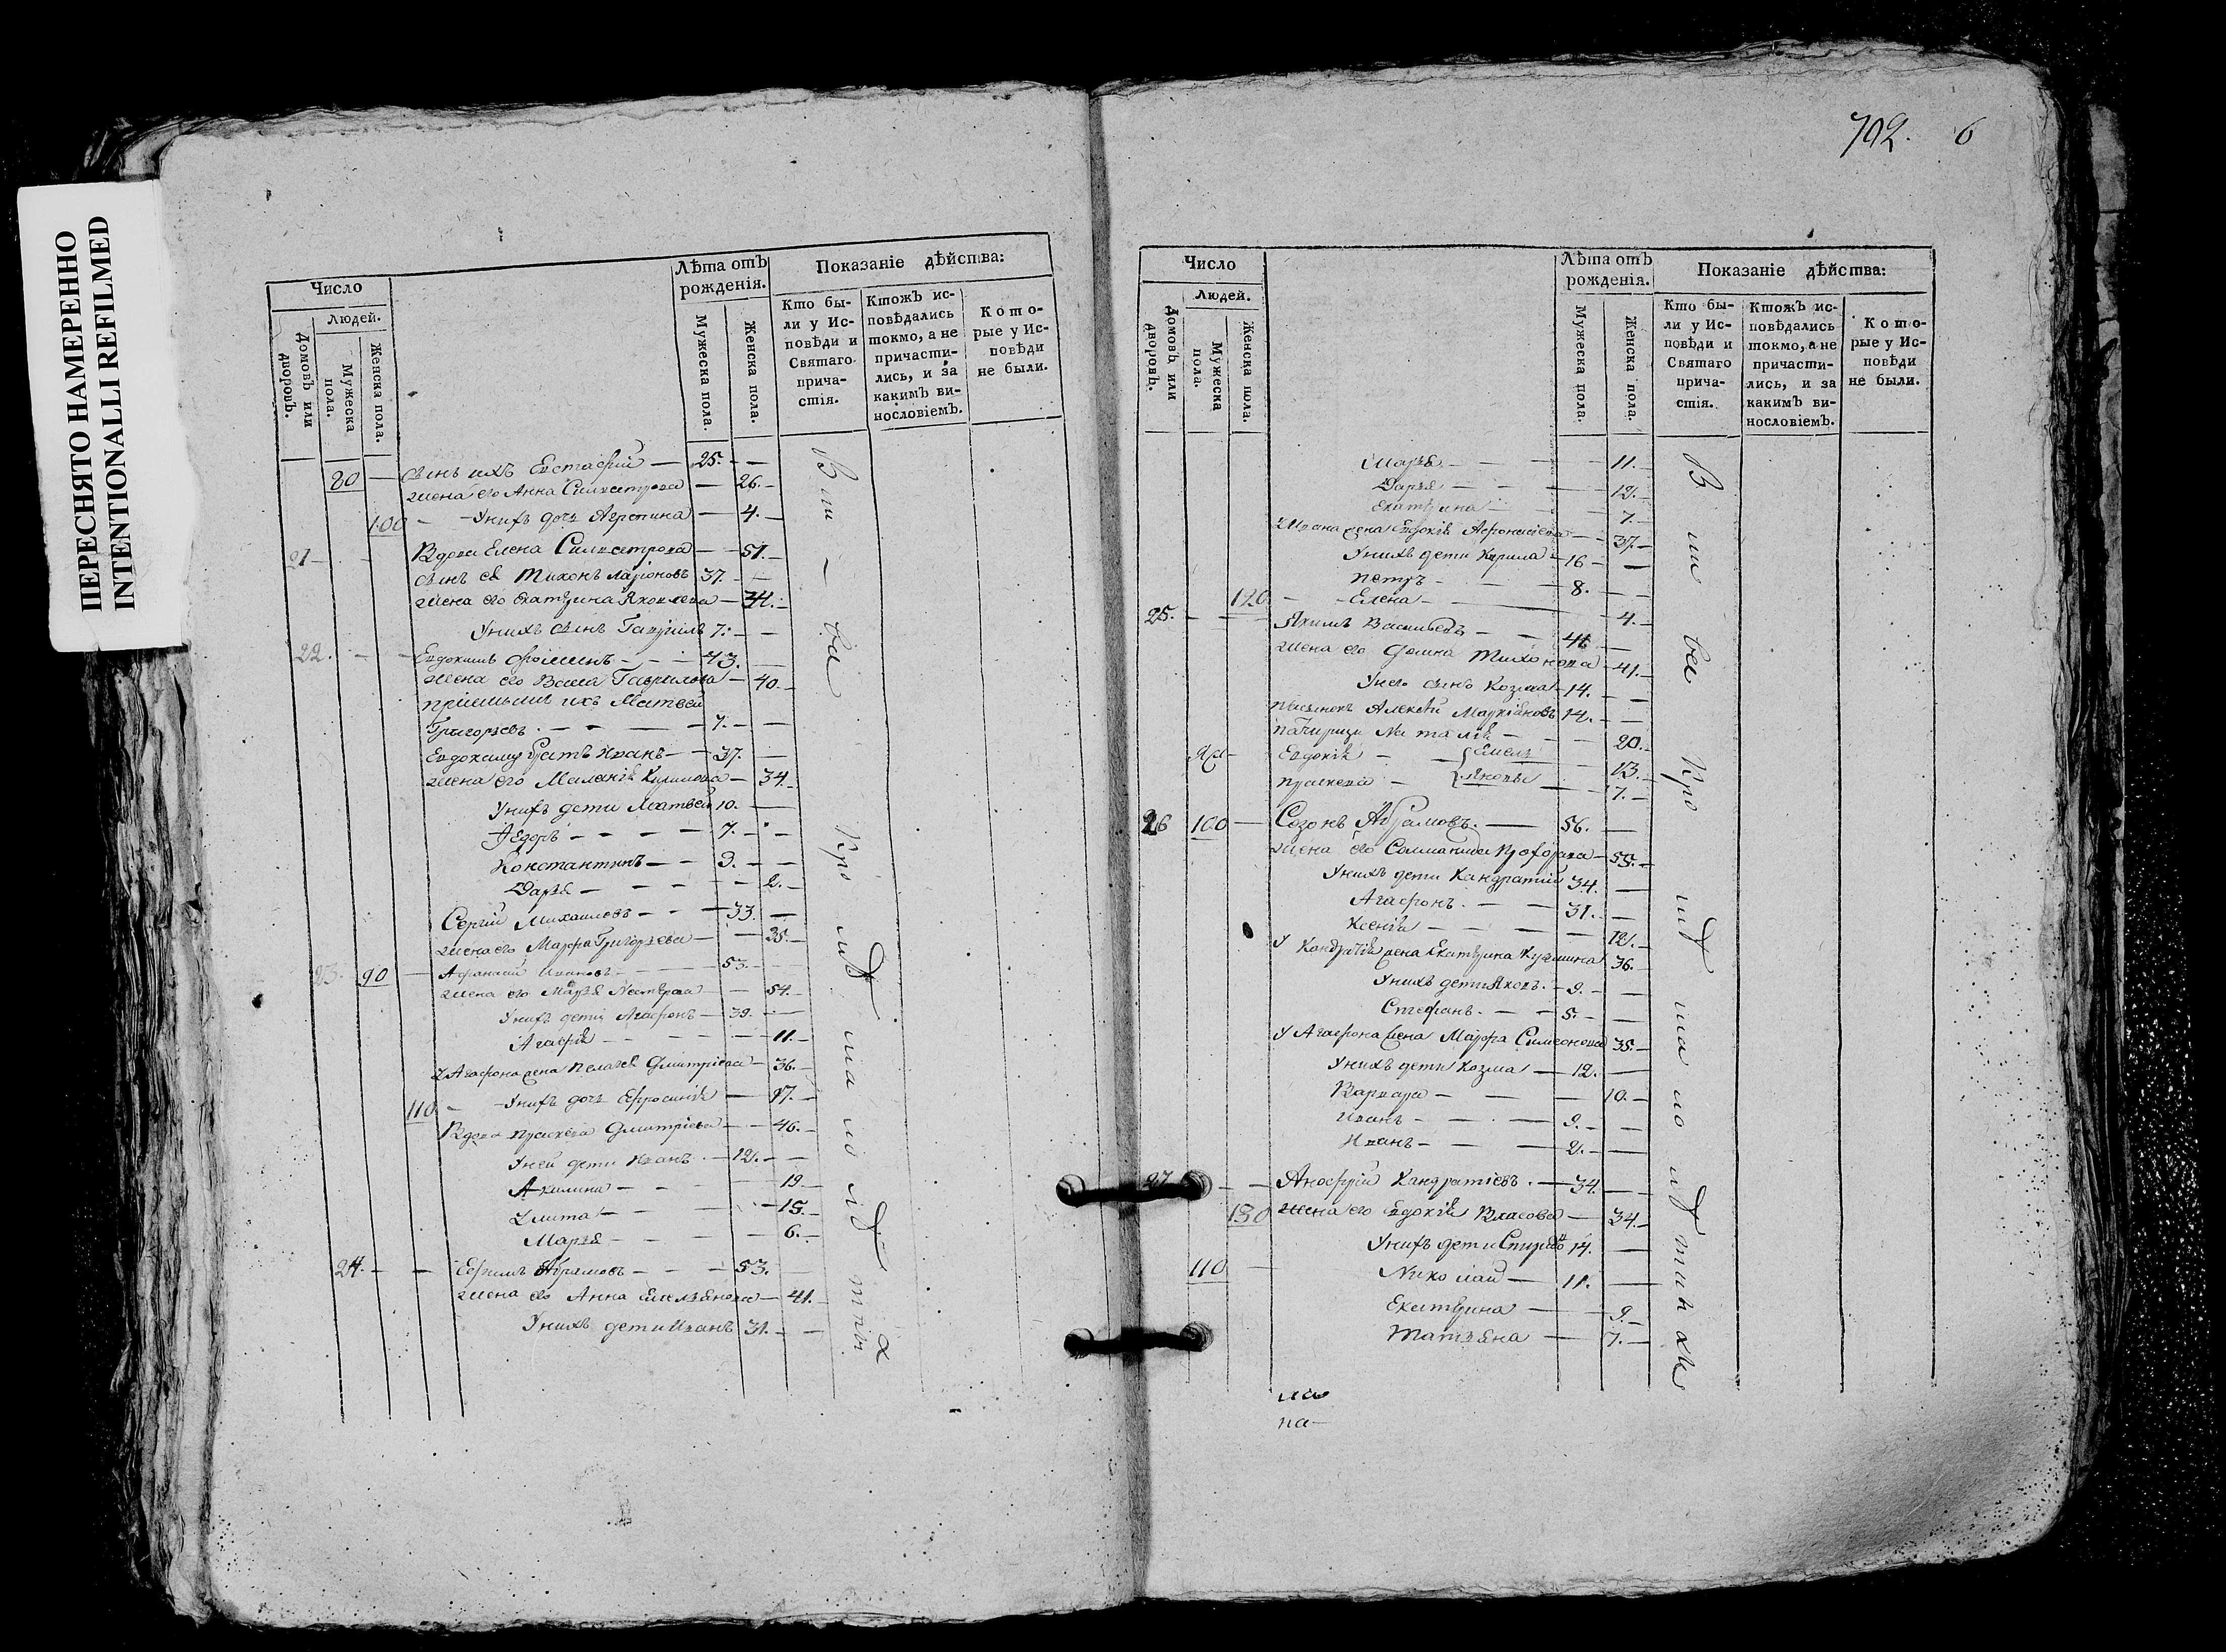 ПЕРЕСНЯТО НАМЕРЕННО
INTENTIONALLI REFILMED
Число
Людей.
Домовъ или дворовъ.
Мужеска пола.
Женска пола.
Лѣта отъ рожденія.
Мужеска пола.
Женска пола.
Показаніе дѣйства:
Кто бы-
ли у Ис-
повѣди и
Святаго
прича-
стія.
Ктожъ ис-
повѣдались
токмо, а не
причасти-
лись, и за
какимъ ви-
нословіемъ.
Кото-
рые у Ис-
повѣди
не были.
80 — сынъ ихъ Евстафій — 25. —
жена его Анна Силвестрова — 26. —
100 — У нихъ дочь Агрепина — 4. —
21 — Вдова Елена Силвестрова — 51. —
сынъ ея Тихонъ Ларіоновъ 37. —
жена его Екатерина Яковлева — 34. —
У нихъ сынъ Гавріилъ 7. —
22. — Евдокимъ Фоминъ — 43. —
жена его Васса Гаврилова — 40. —
пріемышъ ихъ Матвей
Григорьевъ — 7. —
Евдокиму братъ Иванъ — 37. —
жена его Маланія Кирилова — 34. —
У нихъ дети Матвей 10. —
Ѳедоръ — 7. —
Константинъ — 3. —
Дарья — 2. —
Сергій Михаиловъ — 33. —
жена его Марфа Григорьева — 35. —
23. 90 — Афанасій Ивановъ — 53. —
жена его Марья Нестерова — 54. —
У нихъ дети Агафонъ — 39. —
Агафія — 11. —
У Агафона жена Пелагея Дмитріева — 36. —
110 — У нихъ дочь Ефросинія — 17. —
Вдова Праскева Дмитріева — 46. —
У ней дети Иванъ — 12. —
Акилина — 19 —
Улита — 15. —
Марья — 6. —
24. — Ефимъ Абрамовъ — 53.
жена его Анна Емельянова — 41. —
У нихъ дети Иванъ 31. —
702. 6
Число
Людей.
Домовъ или дворовъ.
Мужеска пола.
Женска пола.
Лѣта отъ рожденія.
Мужеска пола.
Женска пола.
Показаніе дѣйства:
Кто бы-
ли у Ис-
повѣди и
Святаго
прича-
стія.
Ктожъ ис-
повѣдались
токмо, а не
причасти-
лись, и за
какимъ ви-
нословіемъ.
Кото-
рые у Ис-
повѣди
не были.
Марья — 11. —
Дарья — 12. —
Екатерина — 7. —
У Ивана жена Евдокія Афонасіева — 37. —
У нихъ дети Кирила — 16 —
Петръ — 8. —
120. — Елена — 4. —
25. — Якимъ Васильевъ — 44 —
жена его Домна Тихонова — 41. —
У него сынъ Козма — 14. —
Пасынокъ Алексѣй Маркіановъ 14. —
Падчерицы Наталія — 20. —
Евдокія — 13. —
Праскева — 7. —
26 100 — Созонъ Абрамовъ. — 56. —
жена его Соломанида Прохорова — 55. —
У нихъ дети Кандратій 34. —
Агафонъ. — 31. —
Ксенія — 12. —
У Кандратія жена Екатерина Кузмина 36. —
У нихъ дети Яковъ. — 9. —
Стефанъ. — 5. —
У Агафона жена Марфа Симеонова 35. —
У нихъ дети Козма — 12. —
Варвара — 10. —
Иванъ — 9. —
Иванъ — 2. —
27 — Анофрій Кандратіевъ. — 34. —
130 жена его Евдокія Власова — 34. —
У нихъ дети Спиридо 14. —
110 — Николай — 11. —
Екатерина — 9. —
Татьяна — 7. —